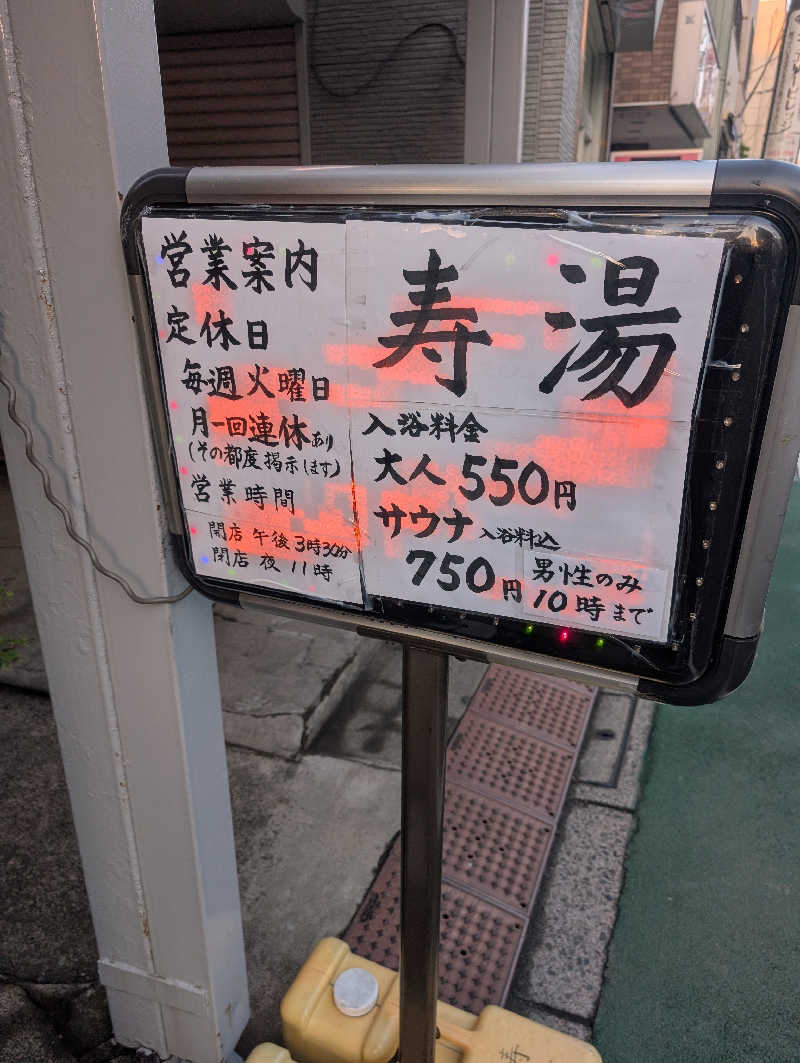 営業案内
定休日
毎週火曜日
月一回連休あり
(その都度掲示します)
営業時間
開店 午後3時30分
閉店 夜11時
寿湯
入浴料金
大人550円
サウナ入浴料込
750円
男性のみ
10時まで